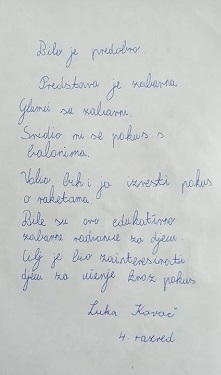 Bilo je predobro
Predstava je zabavna
Glumci su zabavni.
Svidio mi se pokus s
balonima.
Volio bih i ja izvesti pokus
o raketama.
Bile su ovo edukativno
zabavne radionice za djecu.
Cilj je bio zainteresirati
djecu za učenje kroz pokus
Luka Kovač
4. razred